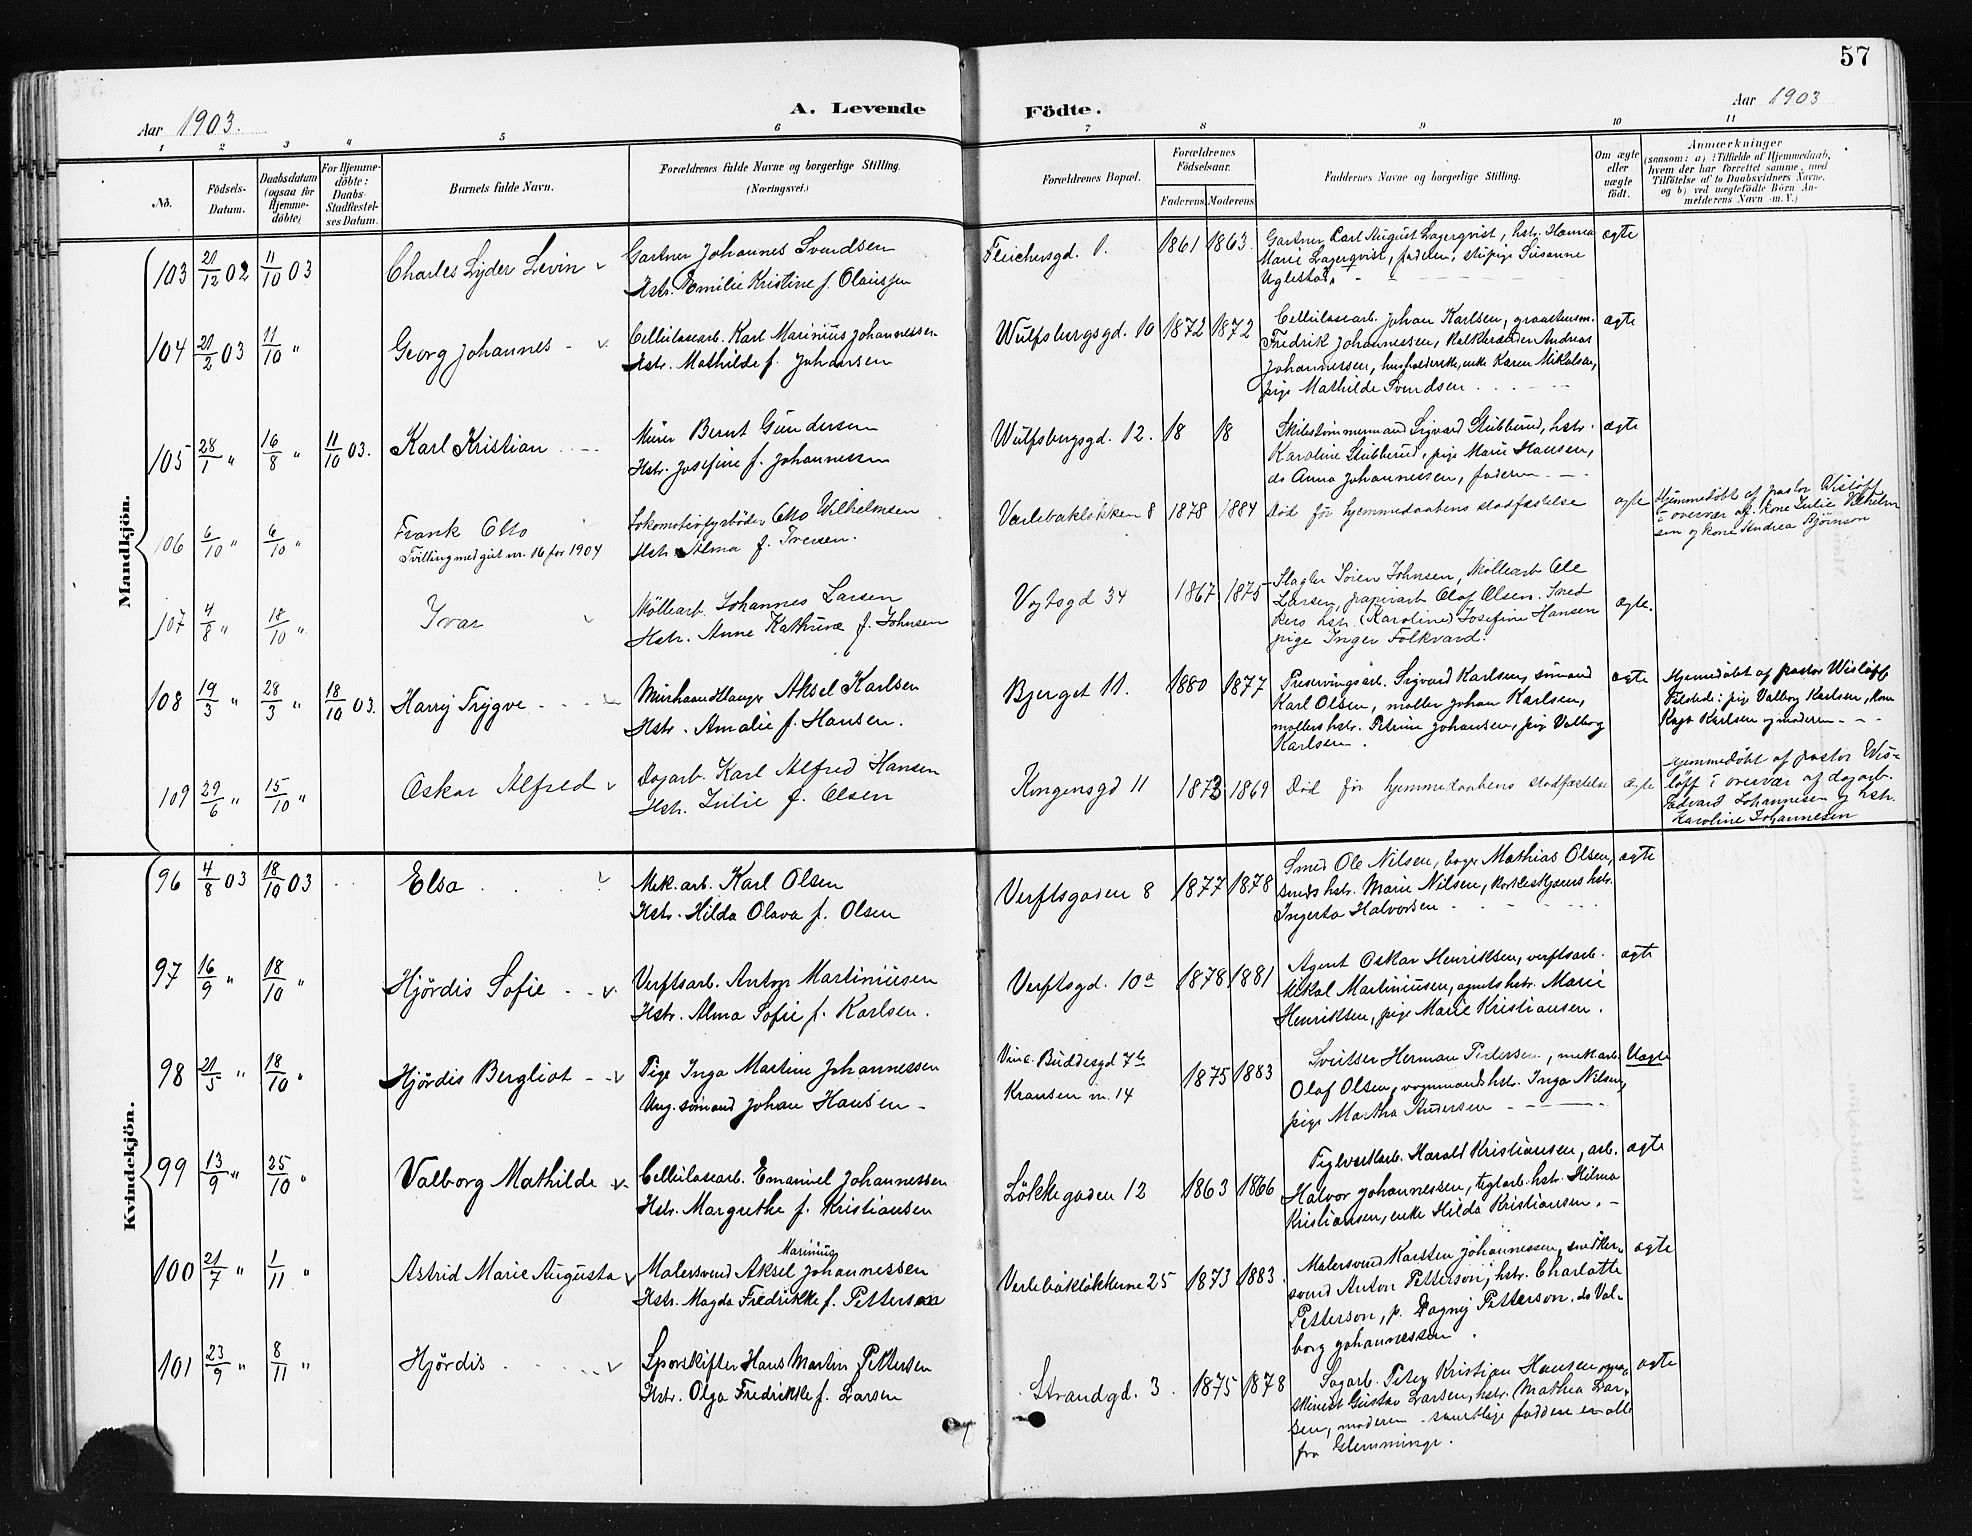 57
Aar 1903.
A. Levende Födte.
Aar 1903
1 2 3 4 5 6 7 8 9 10 11
No.
Födsels-Datum.
Daabsdatum (ogsaa for Hjemme-döbte)
For Hjemme-döbte: Daabs Stadfæstel-ses Datum.
Barnets fulde Navn.
Forældrenes fulde Navne og borgerlige Stilling.
(Næringsvei.)
Forældrenes Bopæl.
Forældrenes Födselsaar.
Faderens Moderens
Faddernes Navne og borgerlige Stilling.
Om ægte eller uægte födt.
Anmærkninger
(saasom: a) i Tilfælde af Hjemmedaab, hvem der har forrettet samme, med Tilföielse af to Daabsvidners Navne, og b) ved uægtefödte Börn An-melderens Navn m. V.)
Mandkjön.
103 21/12 02 11/10 03 Charles Lyder Levin
Gartner Johannes Svendsen
Hstr. Emilie Kristine f. Olaussen
Fleichersgd. 1. 1861 1863.
Gartner Carl August Lagerqvist, hstr. Hanna
Marie Lagerqvist, faderen, stupige Susanne
Uglestad. ægte
104 21/2 03 11/10 " Georg Johannes
Cellulosearb. Karl Marinius Johannessen
Hstr. Mathilde f. Johansen
Wulfsbergsgd. 10 1872 1872
Cellulosearb. Johan Karlsen,
Fredrik Johannessen, Kalkbrænder Andreas
Johannessen, husholderske, enke Karen Mikalsen,
pige Mathilde Svendsen ægte
105 28/1 " 16/8 " 11/10 03. Karl Kristian
Murer Bernt Gundersen
Hstr. Josefine f. Johannessen
Wulfsbergsgd. 12. 18 18
Skibstømmermand Sigvard Stubberud, hstr.
Karoline Stubberud, pige Marie Hansen,
do Anna Johannessen, faderen ægte
106 6/10 " 6/10 " Frank Otto
Tvilling med git nr. 16 for 1904
Lokomotivfyrbøder Otto Wilhelmsen
Hstr. Alma f. Iversen.
Varlebakløkken 8 1878 1884
Død før hjemmedaabens stadfæstelse ægte
Hjemmedøbt af pastor Wisløff
i overvær af kone Julie Wilhelm
sen og kone Andrea Bjørnson
107 4/8 " 18/10 " Ivar
Møllearb. Johannes Larsen
Hstr. Anne Kathrine f. Johnsen
Vogtsgd 34 1867 1875
Slagter Søren Johnsen, Møllearb Ole
Larsen, papirarb Olaf Olsen. Sned
kers hstr. (Karoline) Josefine Hansen
pige Inger Folkvard. ægte.
108 19/3 " 28/3 " 18/10 03. Harry Trygve
Murhaandlanger Aksel Karlsen
Hstr. Amalie f. Hansen.
Bjerget 11. 1880 1877
Preservingsarb. Sigvard Karlsen, sömand
Karl Olsen, møller Johan Karlsen,
møllers hstr. Petrine Johansen, pige Valborg
Karlsen. ægte
Hjemmedöbt af pastor Wisløff
Tilstede: pige Valborg Karlsen, kone
Karlsen og moderen
109 29/6 " 15/10 " Oskar Alfred
Dagarb. Karl Alfred Hansen
Hstr. Julie f. Olsen
Kongensgd 11 1873 1869
Død før hjemmedaabens stadfæstelse ægte
Hjemmedøbt af pastor Wis-
løff i overvær af dagarb.
Edvard Johannesen og hstr.
Karoline Johannesen
Kvindekjön.
96 4/8 03 18/10 03 Elsa
Mek. arb. Karl Olsen
Hstr. Hilda Olava f. Olsen
Verftsgaden 8 1877 1878
Smed Ole Nilsen, bager Mathias Olsen,
smeds hstr. Marie Nilsen, korkeskjærers hstr.
Halvorsen ægte
97 16/9 " 18/10 " Hjördis Sofie
Verftsarb. Anton Martiniusen
Hstr. Alma Sofie f. Karlsen.
Verftsgd. 10a 1878 1881
Agent Oskar Henriksen, verftsarb.
Mikal Martiniusen, agents hstr. Marie
Henriksen, pige Marie Kristiansen. ægte
98 21/5 " 18/10 " Hjördis Bergliot
Pige Inga Martine Johannessen
Ung. sömand Johan Hansen
Vinc. Buddesgd 7
Kransen nr. 14 1875 1883
Herman Pedersen, mek arb
Olaf Olsen, vognmands hstr. Inga Nilsen,
pige Martha Andersen Uægte
99 13/9 " 25/10 " Valborg Mathilde
Cellulosearb. Emanuel Johannessen
Hstr. Margrethe f. Kristiansen
Løkkegaden 12 1863 1866
Teglverkarb. Harald Kristiansen, arb.
Halvor Johannessen, teglarb. hstr. Hilma
Kristiansen, enke Hilda Kristiansen. ægte
100 21/7 " 1/11 " Astrid Marie Augusta
Marinius
Malersvend Aksel Johannessen
Hstr. Magda Fredrikke f. Petterson
Varlebakløkkerne 25 1873 1883.
Malersvend Karsten Johannessen, snedker-
svend Anton Petterson, hstr. Charlotte
Petterson, p. Dagny Petterson, do Val-
borg Johannessen. ægte
101 23/9 " 8/11 " Hjördis
Sporskifter Hans Martin Pettersen
Hstr. Olga Fredrikke f. Larsen
Strandgd. 3. 1875 1878
Sagarb. Peter Kristian Hansen
Gustav Larsen, hstr. Mathea Lar-
sen, moderen samtlige faddere er alle
fra Glemminge. ægte